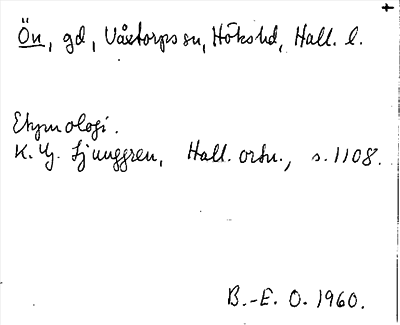 +
Ön, gd, Våxtorps sn, Höks hd, Hall. l.
Etymologi.
K. G. Ljunggren, Hall. ortn., s. 1108.
B.-E. O. 1960.